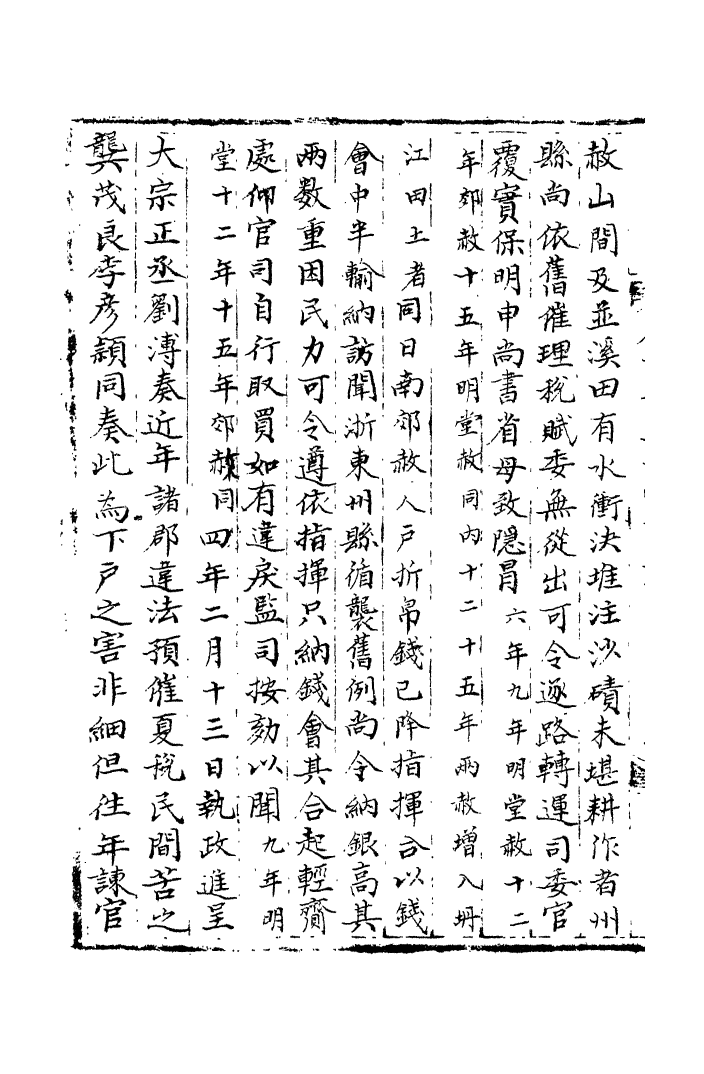 赦山間及並溪田有水衝決堆注沙磧未堪耕作者州
縣尚依舊催理稅賦委無從出可令逐路轉運司委官
覆實保明申尚書省毋致隱冐六年九年明堂赦十二
年郊赦十五年明堂赦同内十二十五年兩赦增入坍
江田土者同日南郊赦人戸折帛錢已降指揮合以錢
會中半輸納訪聞浙東州縣循襲舊例尚令納銀高其
兩数重因民力可令遵依指揮只納錢會其合起輕齎
處仰官司自行取買如有違戾監司按劾以聞九年明
堂十二年十五年郊赦同四年二月十三日執政進呈
大宗正丞劉溥奏近年諸郡違法預催夏稅民間苦之
龔茂良李彦頴同奏此為下戸之害非細但徃年諫官